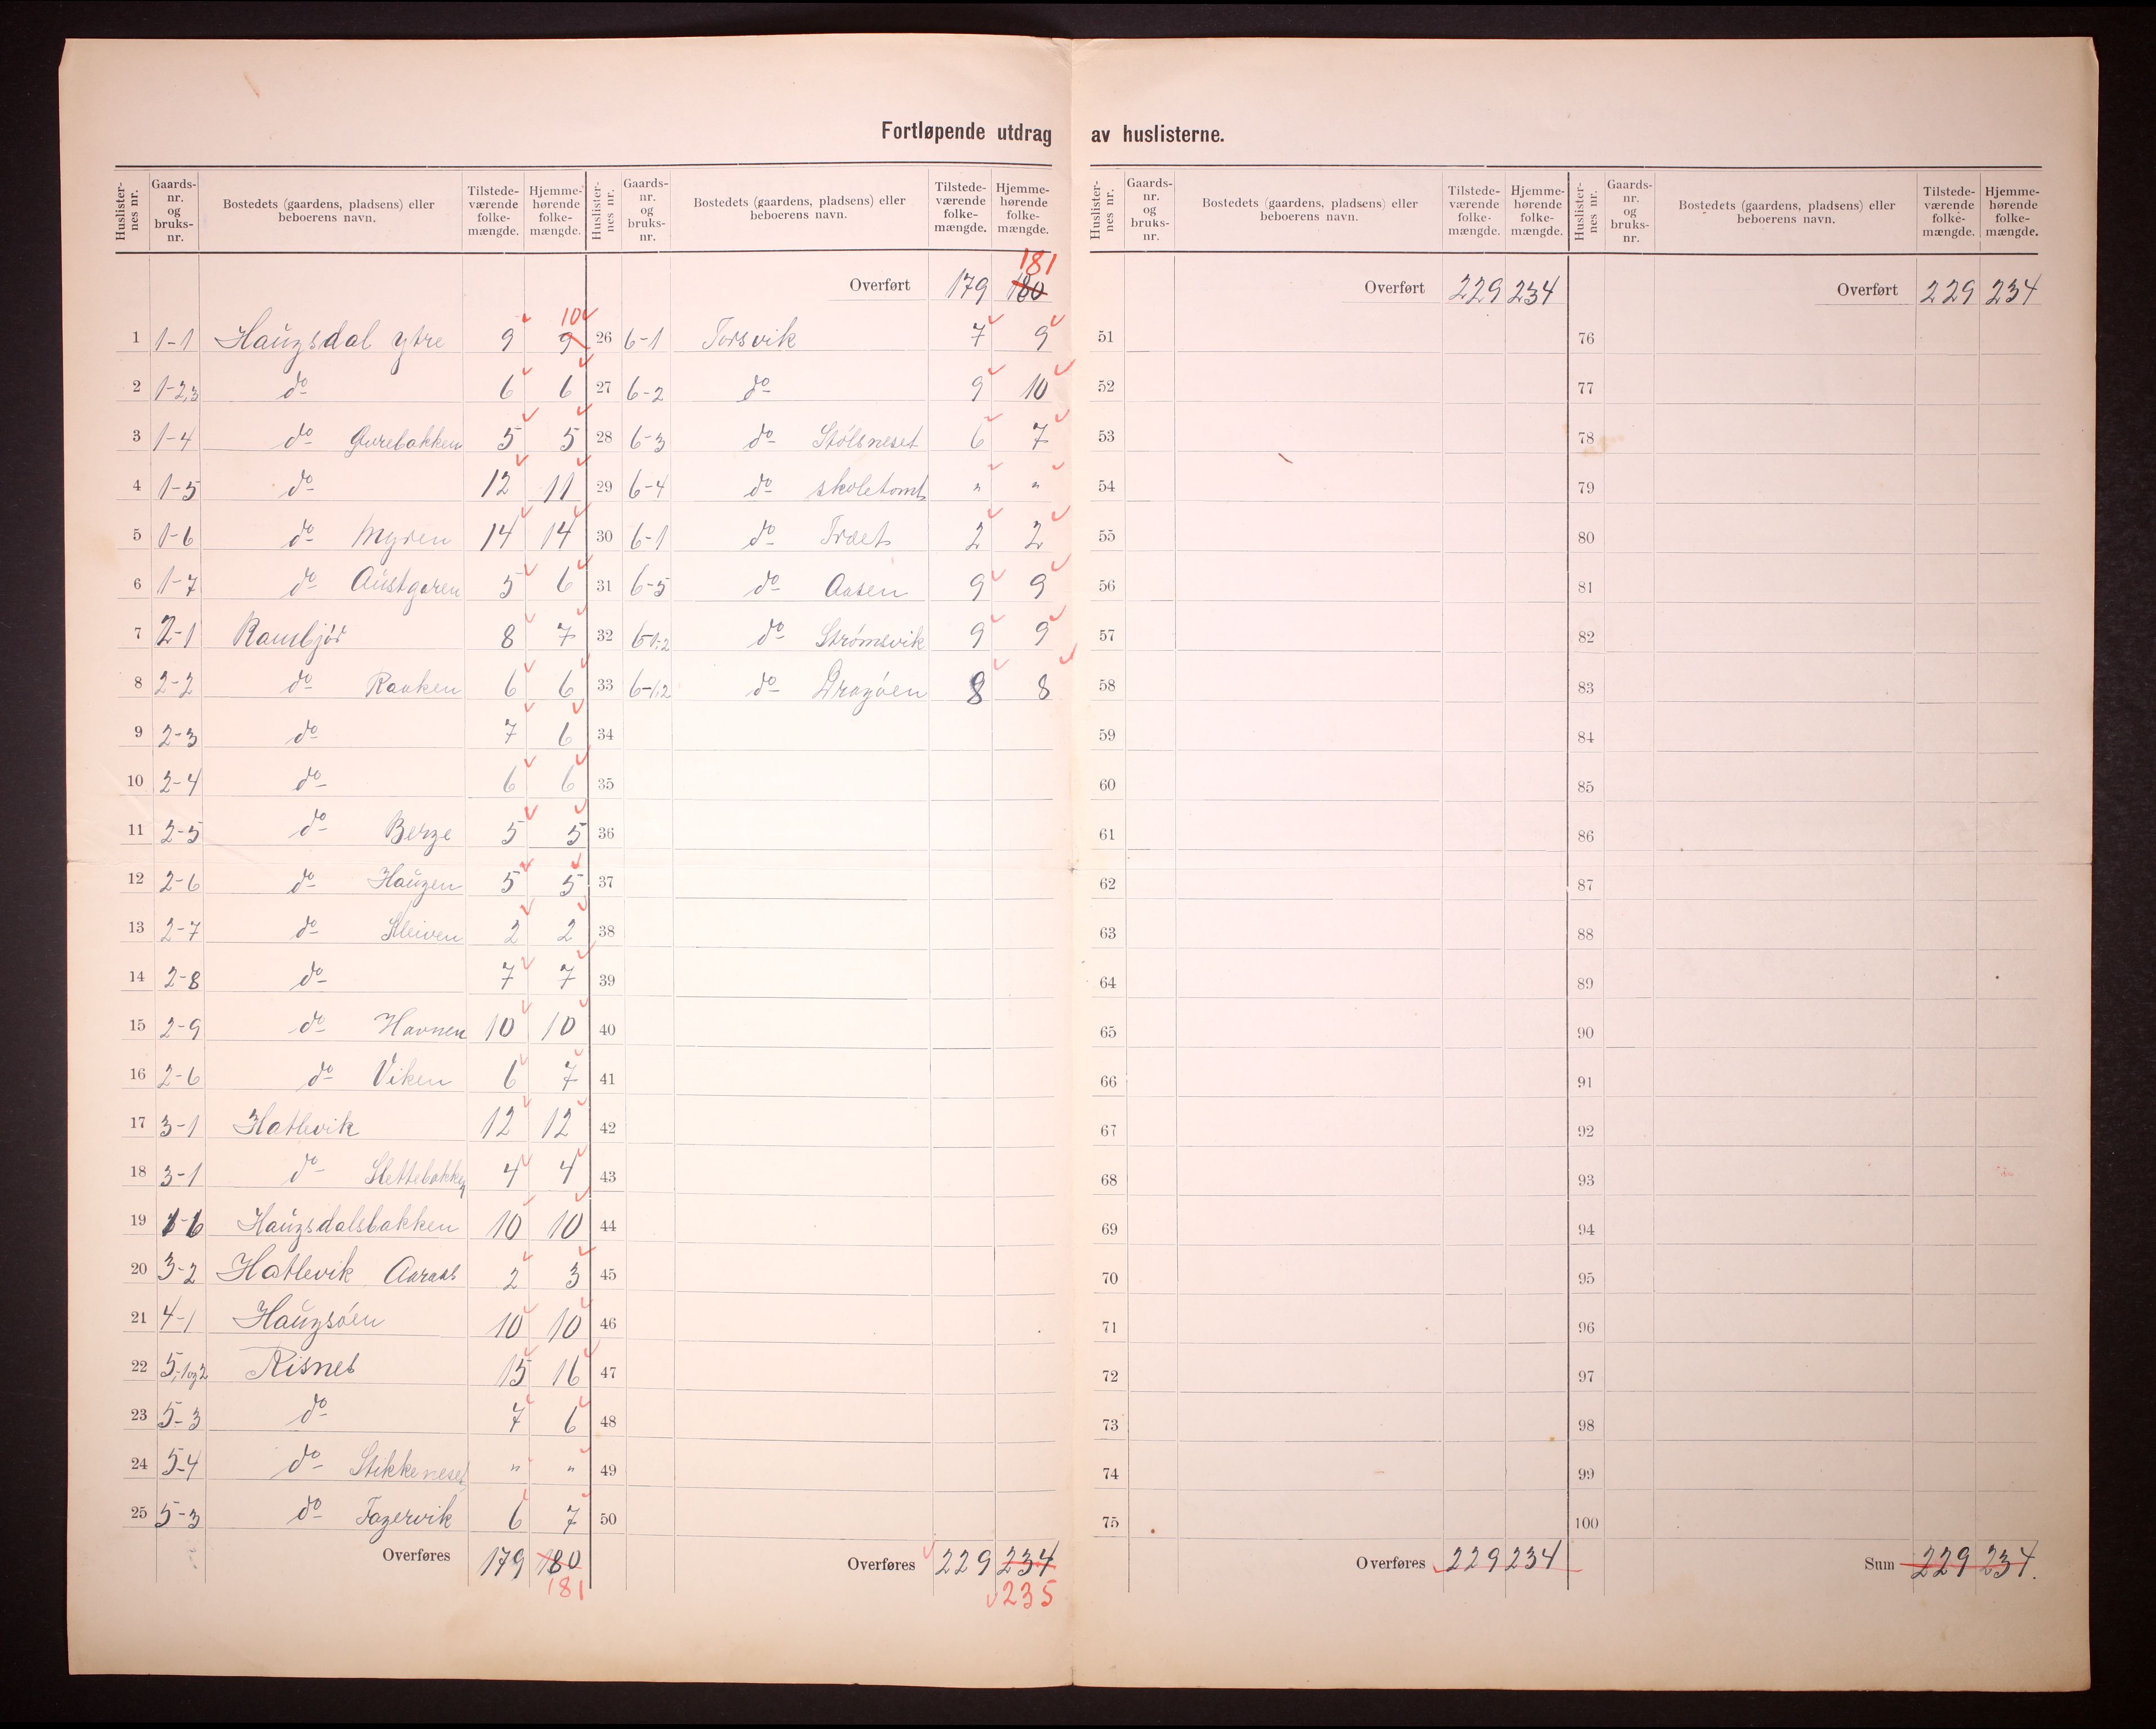 Fortløpende utdrag av huslisterne.
Huslisternes nr. | Gaards-nr. og bruks-nr. | Bostedets (gaardens, pladsens) eller beboerens navn. | Tilstede-værende folke-mængde. | Hjemme-hørende folke-mængde.
1 1-1 Haugsdal ytre 9 9 10
2 1-2,3 do 6 6
3 1-4 do Gurebakken 5 5
4 1-5 do 12 11
5 1-6 do Myren 14 14
6 1-7 do Austgaren 5 6
7 2-1 Ramsbjør 8 7
8 2-2 do Raaken 6 6
9 2-3 do 7 6
10 2-4 do 6 6
11 2-5 do Berge 5 5
12 2-6 do Haugen 5 5
13 2-7 do Kleiven 2 2
14 2-8 do 7 7
15 2-9 do Havnen 10 10
16 2-6 do Viken 6 7
17 3-1 Hatlevik 12 12
18 3-1 do Slettebakken 4 4
19 1-6 Haugsdalsbakken 10 10
20 3-2 Hatlevik Aaraas 2 3
21 4-1 Haugsøen 10 10
22 5,-1og2 Risnes 15 16
23 5-3 do 7 6
24 5-4 do Stikkeneset " "
25 5-3 do Fagervik 6 7
Overføres 179 180
181
Huslisternes nr. | Gaards-nr. og bruks-nr. | Bostedets (gaardens, pladsens) eller beboerens navn. | Tilstede-værende folke-mængde. | Hjemme-hørende folke-mængde.
181
Overført 179 180
26 6-1 Torsvik 7 9
27 6-2 do 9 10
28 6-3 do Stølsneset 6 7
29 6-4 do skoletomt " "
30 6-1 do Træet 2 2
31 6-5 do Aasen 9 9
32 6-1,2 do Strømsvik 9 9
33 6-1,2 do Dragøen 8 8
34
35
36
37
38
39
40
41
42
43
44
45
46
47
48
49
50
Overføres 229 234
235
Huslisternes nr. | Gaards-nr. og bruks-nr. | Bostedets (gaardens, pladsens) eller beboerens navn. | Tilstede-værende folke-mængde. | Hjemme-hørende folke-mængde.
Overført 229 234
51
52
53
54
55
56
57
58
59
60
61
62
63
64
65
66
67
68
69
70
71
72
73
74
75
Overføres 229 234
Huslisternes nr. | Gaards-nr. og bruks-nr. | Bostedets (gaardens, pladsens) eller beboerens navn. | Tilstede-værende folke-mængde. | Hjemme-hørende folke-mængde.
Overført 229 234
76
77
78
79
80
81
82
83
84
85
86
87
88
89
90
91
92
93
94
95
96
97
98
99
100
Sum 229 234.